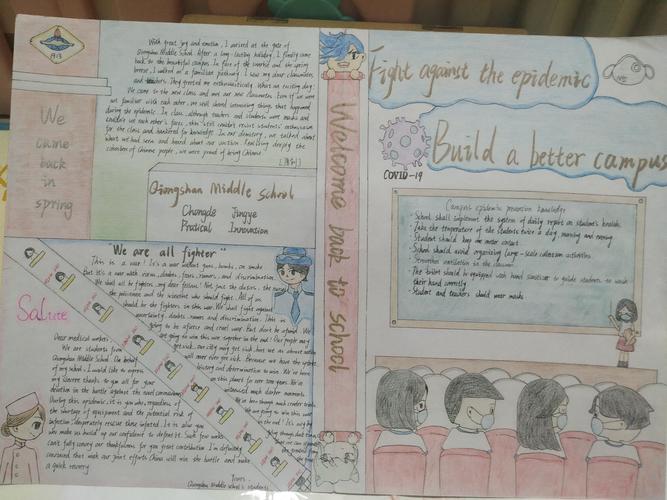 1913
We
came
back
in
spring
With great joy and emotion, I arrived at the gate of
Qiongshan Middle School. After a long-lasting holiday, I finally came
back to the beautiful campus. In face of the sunshine and the spring
breeze, I walked on a familiar pathway. I saw my dear classmates,
and teachers. They greeted me enthusiastically. What an exciting day!
We came to the new class and met our new classmates. Even if we were
not familiar with each other, we still shared interesting things that happened
during the epidemic. In class, although teachers and students wore masks and
couldn't see each other's faces, this still couldn't resist students' enthusiasm
for the class and hankered for knowledge. In our dormitory, we talked about
what we had seen and heard about our nation. Realising deeply the
cohesion of Chinese people, we were proud of being Chinese
Qiongshan Middle School
Chongde Jingye
Pratical Innovation
"We are all fighter"
This is a war. It's a war without guns, bombs, or smoke
but it's a war with virus, doubts, fears, rumors, and discrimination.
We shall all be fighters, my dear fellow! Not just the doctors, the nurses
the policemen and the scientist who should fight. All of us
should be the fighters in this war. We shall fight against
uncertainty, doubts, rumors and discrimination. This is
going to be a fierce and cruel war. But don't be afraid. We
are going to win this war together in the end! Our people may
get sick, our city may get sick, but we as
will never ever get sick. Because we have the
history and determination to win. We've
on this planet for over
Salute
Dear medical workers,
We are students from
Qiongshan Middle School. On behalf
of my school, I would like to express
my sincere thanks to you all for your
devotion in the battle against the novel coronavirus.
During this epidemic, it is you who, regardless of
the shortage of equipment and the potential risk of
infection, desperately rescue those infected. It is also you
who make us build up our confidence to defeat it. Such few words
can't fully convey our thankfulness for you great contribution. I'm definitely
convinced that with our joint efforts China will win the battle and make
a quick recovery
Yours
Qiongshan Middle school's students
Welcome back to school
Fight against the epidemic
COVID-19
Build a better campus
Campus epidemic prevention knowledge
· School shall implement the system of daily report on student's health.
· Take the temperature of the students twice a day, morning and evening
· Student should keep one meter contact
· School should avoid organizing large-scale collection activities
· Strengthen ventilation in the classroom
· The toilet should be equipped with hand sanitizer to guide students to wash
their hand correctly
· Student and teachers should wear masks